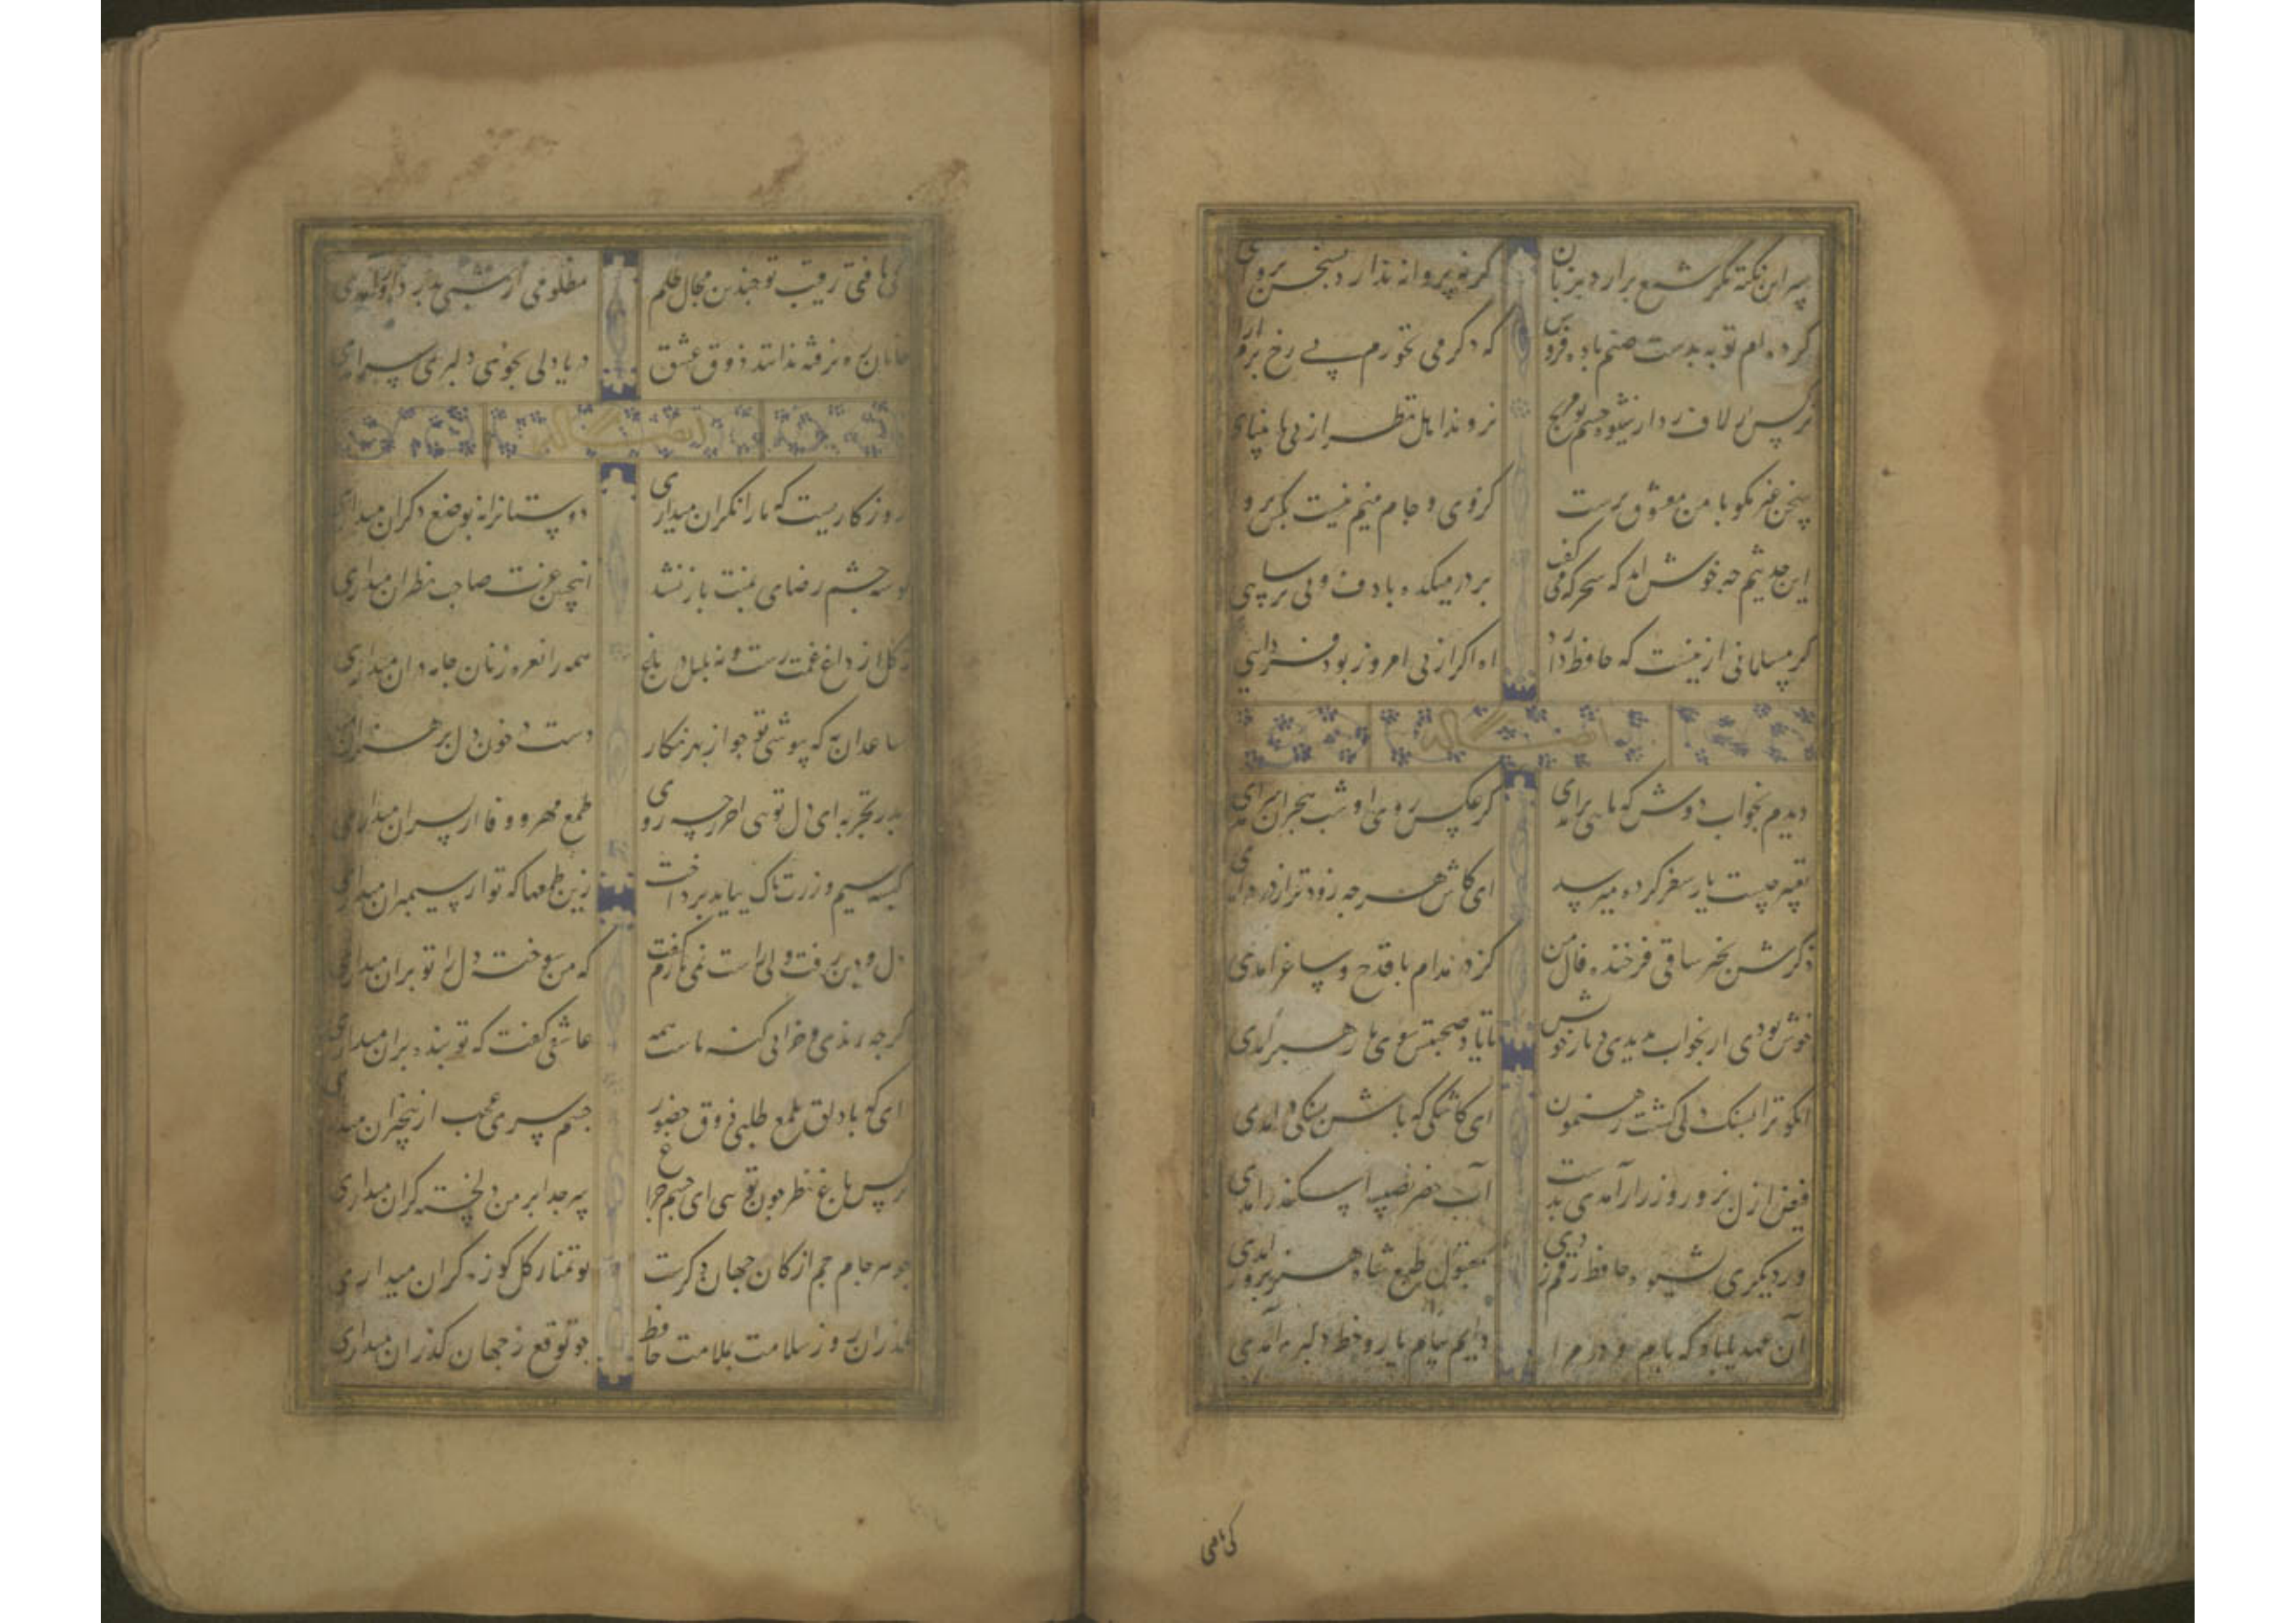 سر این نکته مگر شمع برآرد بزبان کرنه پروانه ندارد بسخن پروای
کرده‌ام توبه بدست صنم باده فروش که دکر می نخورم بی رخ بزم ارای
نرکس ار لاف زد از شیوه چشم تو مرنج نروند اهل نظر از پی نابینای
سخن غیر مکو با من معشوق پرست کز وی و جام میم نیست بکس پروای
این حدیثم چه خوش امد که سحرکه می‌کفت بر در میکده با دف و نی ترسایی
کر مسلمانی ازینست که حافظ دارد اه اکر از پی امروز بود فردایی
ایضا له
دیدم بخواب دوش که ماهی برامدی کز عکس روی او شب هجران سرامدی
تعبیر چیست یار سفر کرده میرسد ای کاش هر چه زودتر از در درامدی
ذکرش بخیر ساقی فرخنده فال من کز در مدام با قدح و ساغر امدی
خوش بودی ار بخواب بدیدی دیار خویش تا یاد صحبتش سوی ما رهبر آمدی
انکو ترا بسنک دلی کشت رهنمون ای کاشکی که پاش بسنکی در امدی
فیض ازل بزور و زر ار آمدی بدست آب خضر نصیبه اسکندر امدی
ور دیکری بشیوه حافظ زدی رقم مقبول طبع شاه هنر پرور امدی
آن عهد یاد باد که از بام و در مرا دایم پیام یار و خط دلبر آمدی
کی یافتی
کی یافتی رقیب تو چندین مجال ظلم مظلومی ار شبی بدر داور آمدی
خامان ره نرفته ندانند ذوق عشق دریا دلی بجوی دلیری سرامدی
ایضا له
روزکاریست که ما را نکران میداری دوستانرا نه بوضع دکران میداری
کوشه چشم رضای بمنت باز نشد اینچنین عزت صاحب نظران میداری
نه کل از داغ غمت رست و نه بلبل در باغ همه را نعره زنان جامه دران میداری
ساعد آن به که بپوشی تو چو از بهر نکار دست در خون دل پر هنران میداری
پدر تجربه ای دل توی اخر ز چه روی طمع مهر و وفا از پسران میداری
کیسه سیم و زرت پاک بباید پرداخت زین طمعها که تو از سیمبران میداری
دل و دین رفت ولی راست نمی‌یارم کفت که من سوخته دل را تو بران میداری
کرچه رندی و خرابی کنه ماست همه عاشقی کفت که تو بنده بران میداری
ای که با دلق ملمع طلبی ذوق حضور چشم سری عجب از بیخبران میداری
نرکس باغ نظر چون توی ای چشم و چراغ سر چرا بر من دلخسته کران میداری
جوهر جام جم از کان جهان دکرست تو تمنا ز کل کوزه کران میداری
مکذران روز سلامت بملامت حافظ چه توقع ز جهان کذران میداری